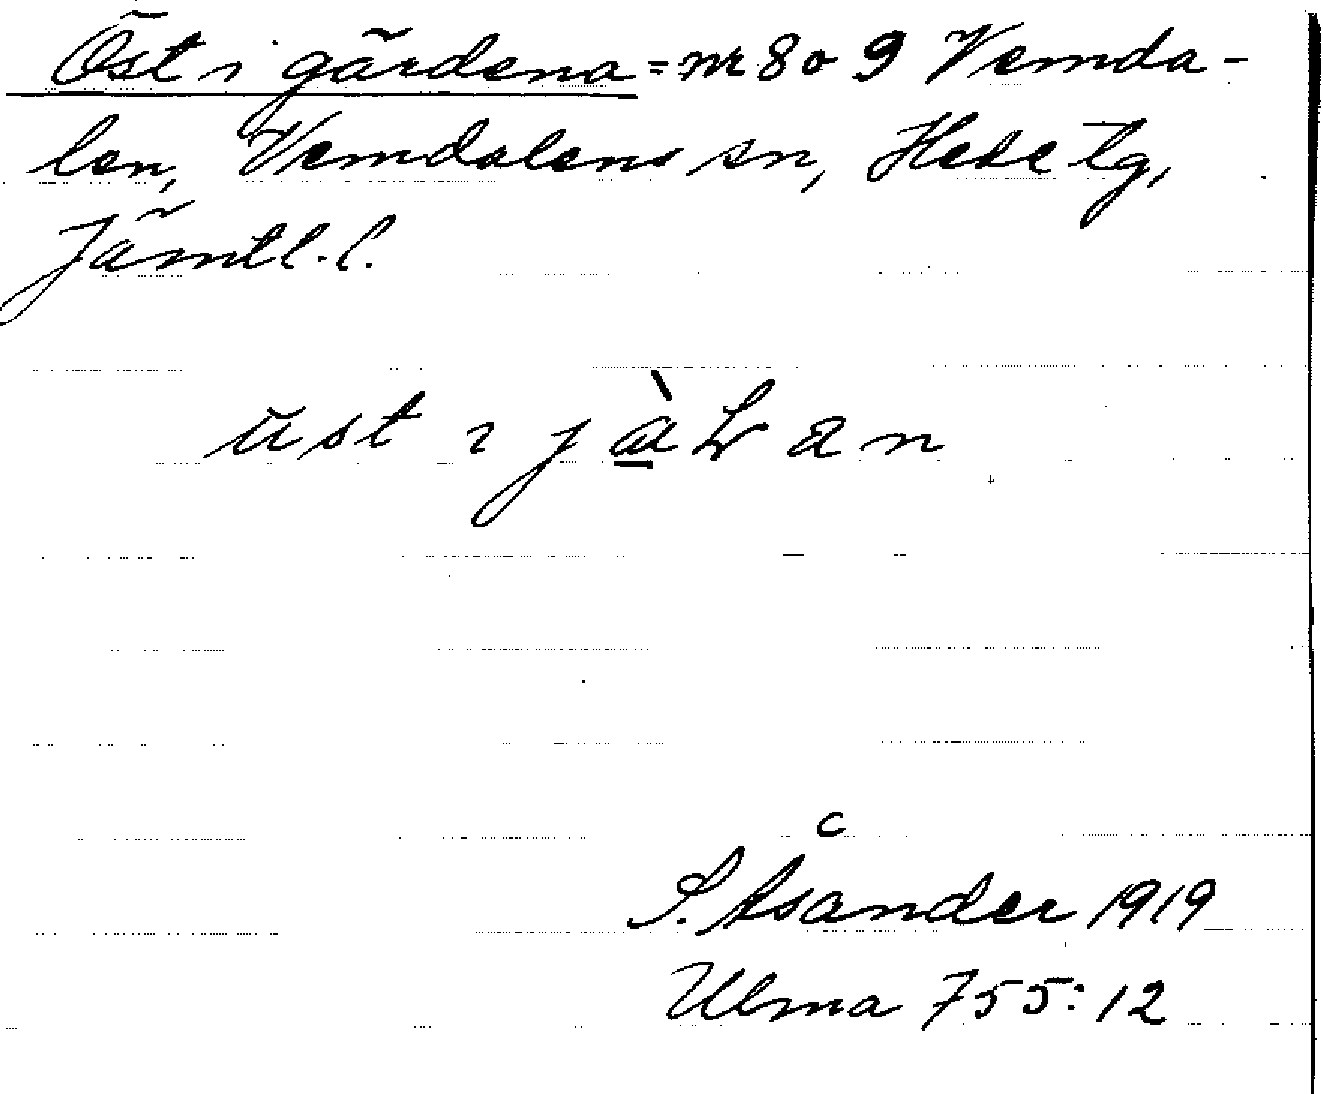 Öst i gärdena = nr 8 o 9 Vemda-
len, Vemdalens sn, Hede tg,
Jämtl. l.
S. Åsander 1919
Ulma 755:12